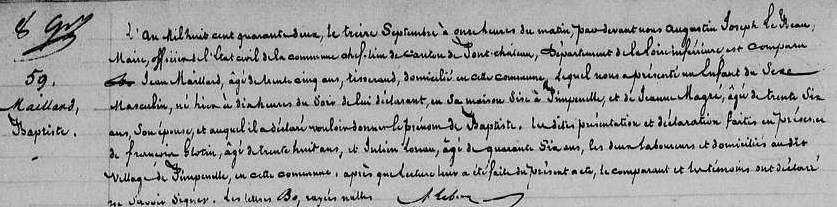 59.
Maillard,
Baptiste.
L'An Mil huit cent quarante deux, le treize Septembre à onze heures du matin, par devant nous Augustin Joseph Le Beau,
Maire, officier de l'état civil de la commune chef-lieu de Canton de Pont-château, Département de la Loire inférieure est comparu
Jean Maillard, âgé de trente cinq ans, tisserand, domicilié en cette commune, Lequel nous a présenté un Enfant du Sexe
Masculin, né hier à dix heures du Soir de lui déclarant, en Sa maison Sise à Pimpenelle, et de Jeanne Magré, âgée de trente Six
ans, Son épouse, et auquel il a déclaré vouloir donner le prénom de Baptiste. Les dites présentation et déclaration faites en présence
de françois Glotin, âgé de trente huit ans, et Julien Loreau, âgé de quarante Six ans, les deux laboureurs et domiciliés au dit
Village de Pimpenelle, en cette commune. après que lecture leur a été faite du présent acte, le comparant et les témoins ont déclaré
ne Savoir Signer. Les lettres Bo, rayées nulles